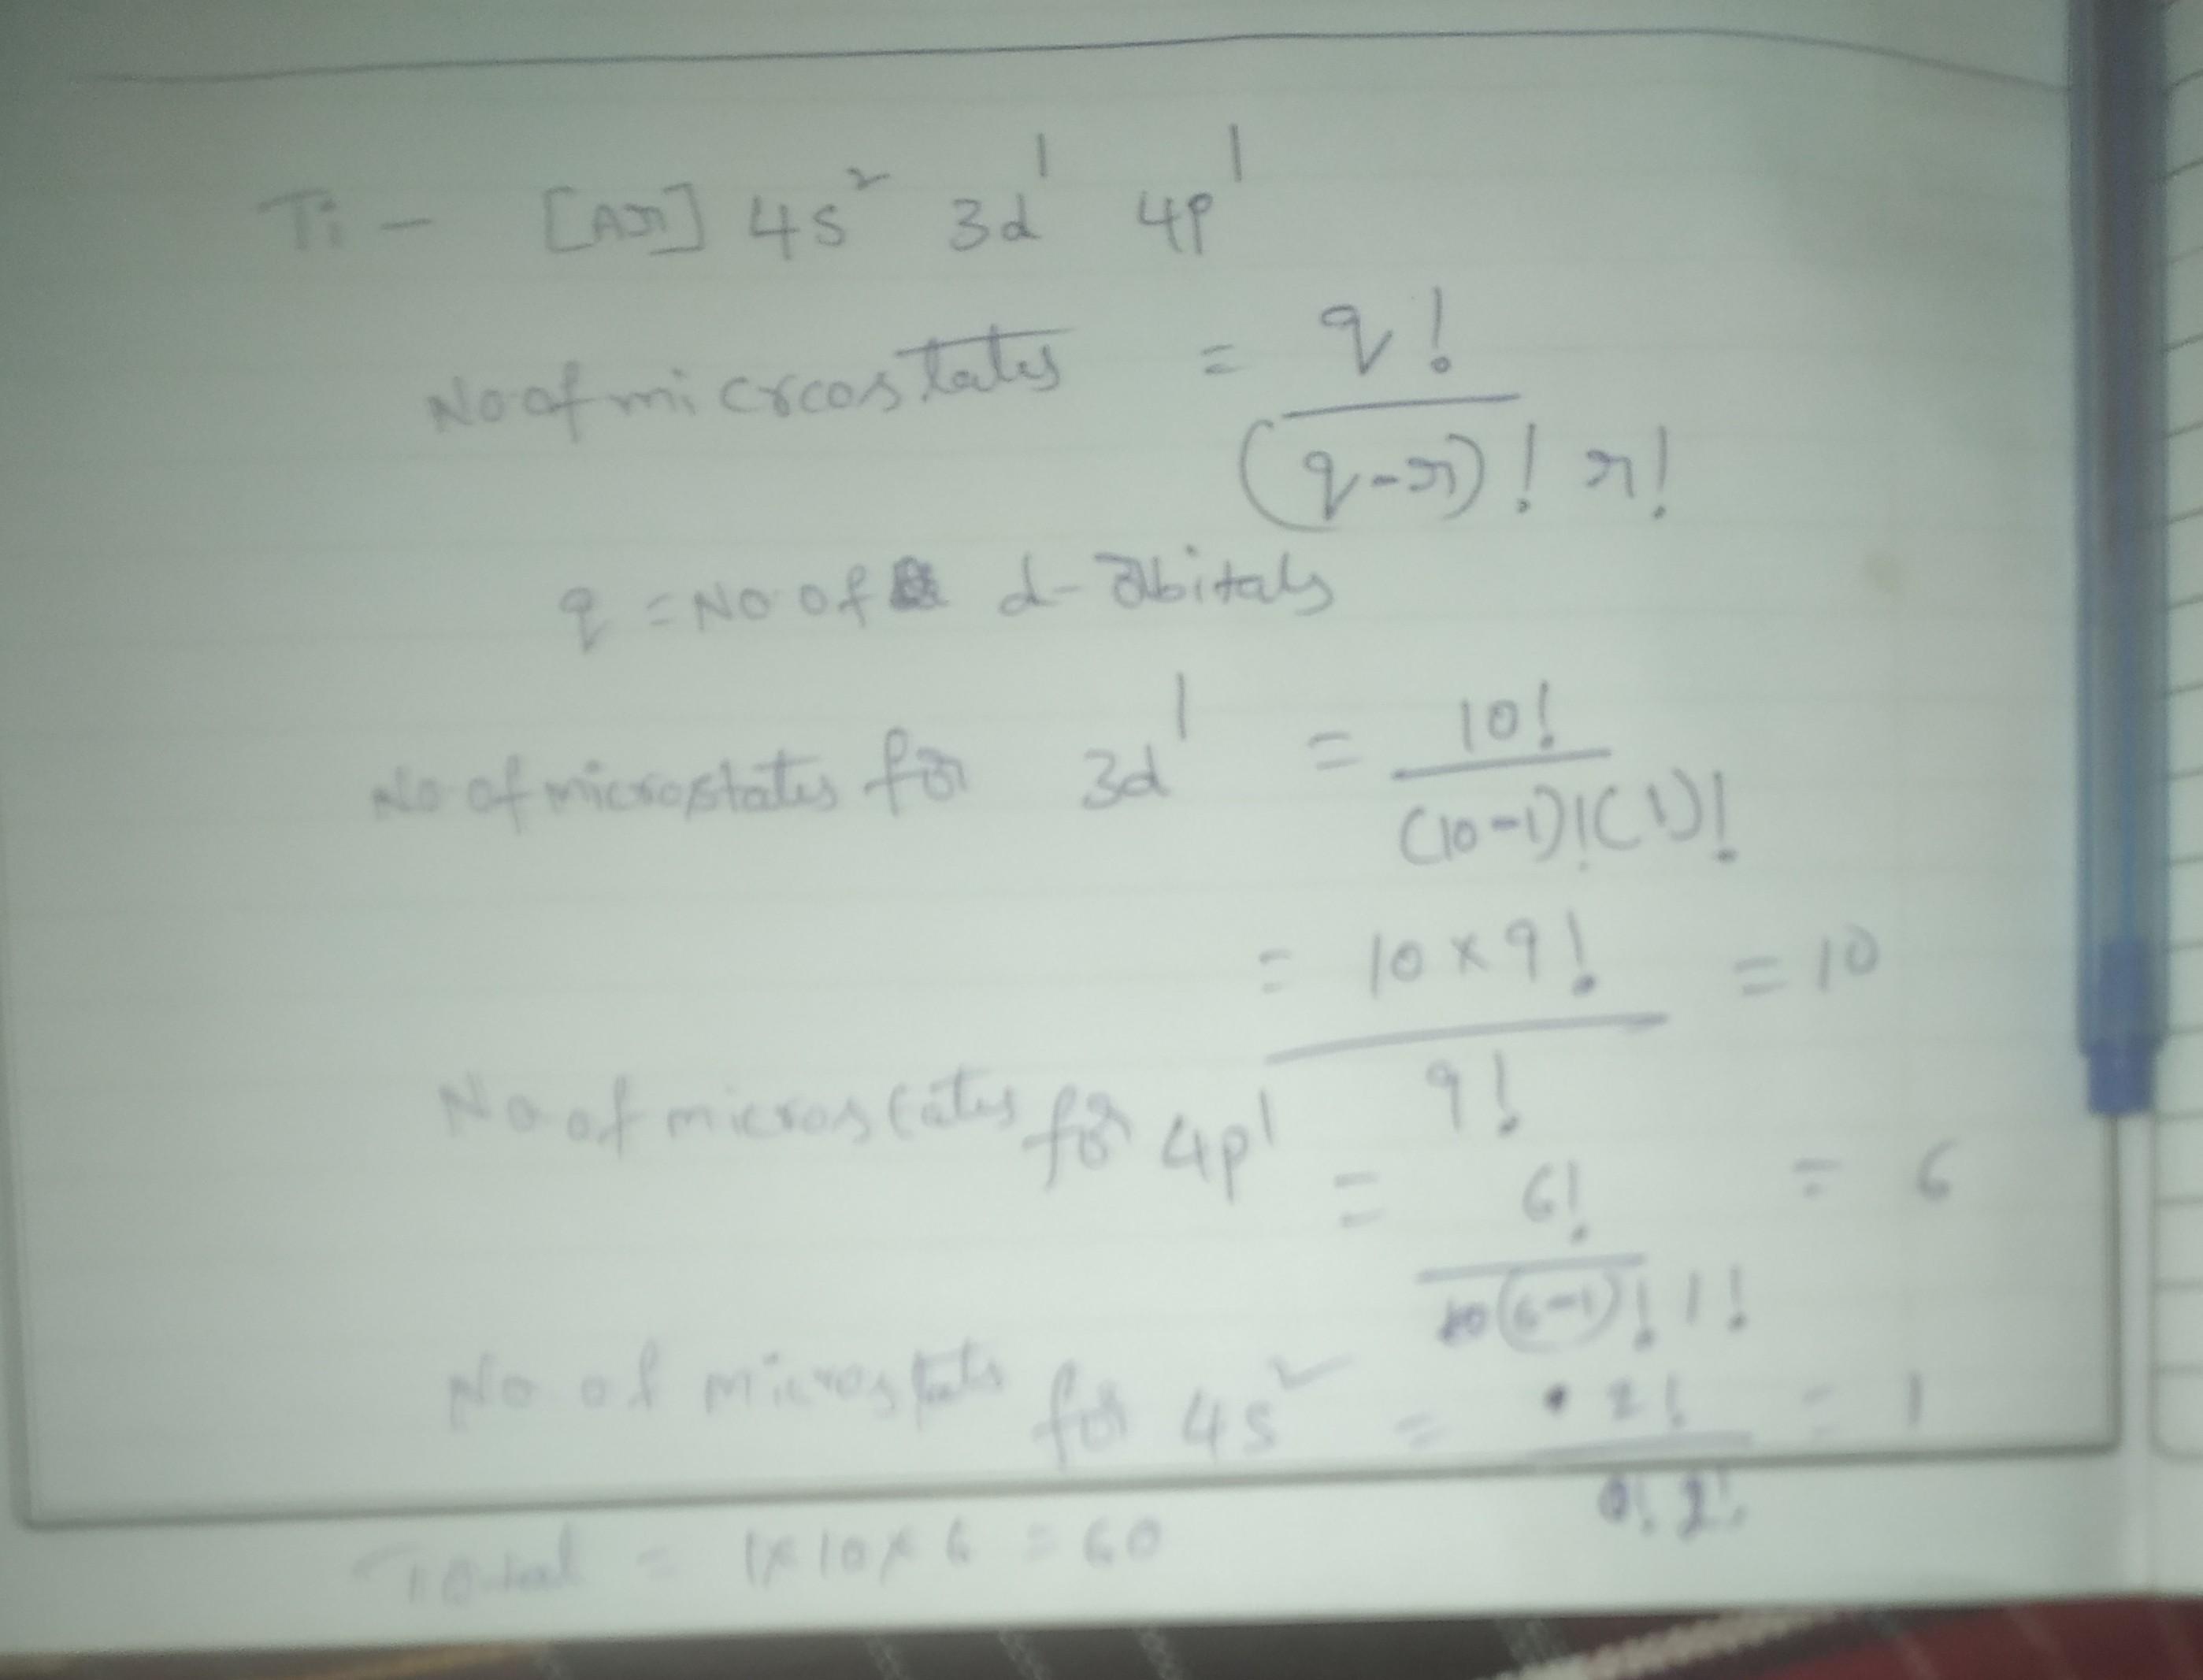 Ti - [Ar] 4s² 3d¹ 4p¹
No of microostates = q! / (q-r)! r!
q = No of d-orbitals
No of microstates for 3d¹ = 10! / (10-1)!(1)!
= 10 × 9! / 9! = 10
No of microstates for 4p¹ = 6! / (6-1)! 1! = 6
No of microstats for 4s² = 2! / 0! 2! = 1
Total = 1×10×6 = 60